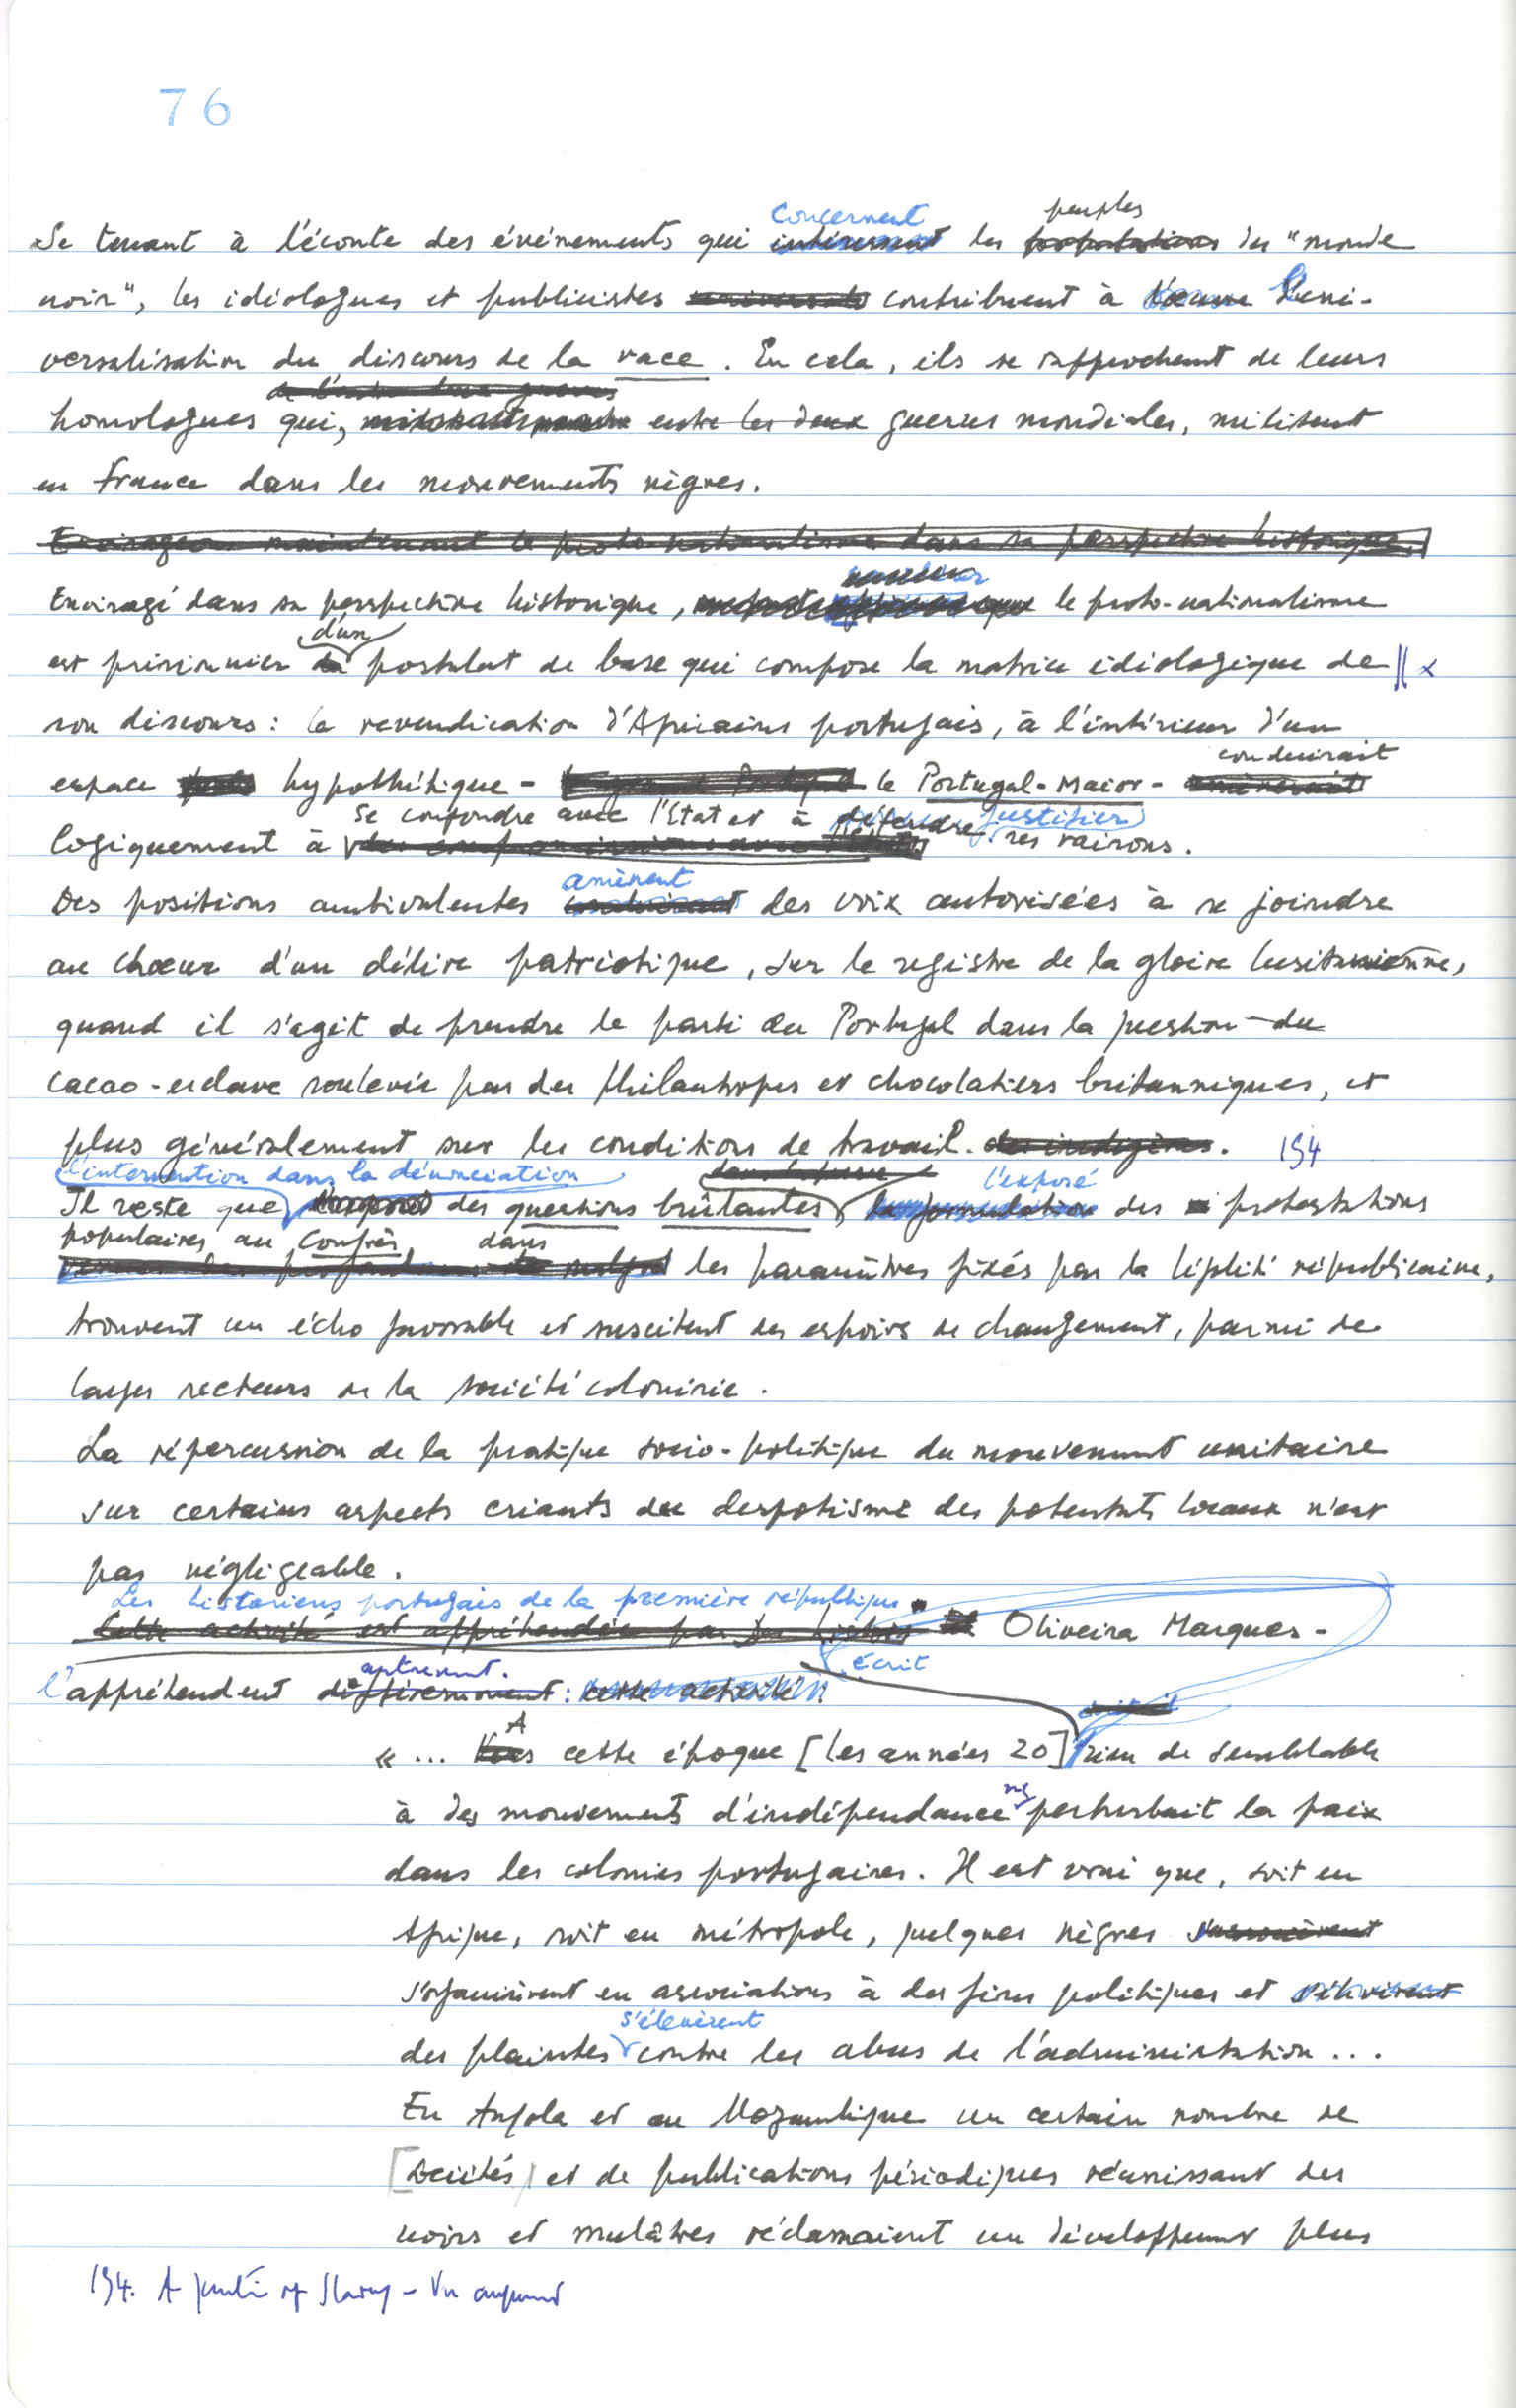 76
concernent peuples
Se tenant à l'écoute des événements qui intéressent les populations du "monde
noir", les idéologues et publicistes contribuent à l'œuvre L'uni-
versalisation du discours de la race. En cela, ils se rapprochent de leurs
homologues qui, entre les deux guerres mondiales, militent
en France dans les mouvements nègres.
Envisageons maintenant le proto-nationalisme dans sa perspective historique.
Envisagé dans sa perspective historique, le proto-nationalisme
d'un
est prisonnier du postulat de base qui compose la matrice idéologique de
son discours : la revendication d'Africains portugais, à l'intérieur d'un
conduirait
espace hypothétique - le Portugal-Maior - amènerait
se confondre avec l'Etat et à défendre justifier
logiquement à ses raisons.
amènent
Des positions ambivalentes conduisent des voix autorisées à se joindre
au chœur d'un délire patriotique, sur le registre de la gloire lusitanienne,
quand il s'agit de prendre le parti du Portugal dans la question du
cacao-esclave soulevée par des philantropes et chocolatiers britanniques, et
plus généralement sur les conditions de travail. des indigènes. 194
l'intervention dans la dénonciation l'exposé
Il reste que l'exposé des questions brûlantes, la formulation des protestations
populaires au Congrès, dans
les paramètres fixés par la légalité républicaine,
trouvent un écho favorable et suscitent des espoirs de changement, parmi de
larges secteurs de la société colonisée.
La répercussion de la pratique socio-politique du mouvement unitaire
sur certains aspects criants du despotisme des potentats locaux n'est
pas négligeable.
Les historiens portugais de la première république
Cette activité est appréhendée par Oliveira Marques -
autrement. écrit
l'appréhendent différemment : cette activité
A
« ... Vers cette époque [les années 20] rien de semblable
ne
à des mouvements d'indépendance perturbait la paix
dans les colonies portugaises. Il est vrai que, soit en
Afrique, soit en métropole, quelques nègres s'associèrent
s'organisèrent en associations à des fins politiques et
s'élevèrent
des plaintes contre les abus de l'administration ...
En Angola et au Mozambique un certain nombre de
[sociétés] et de publications périodiques réunissant des
noirs et mulâtres réclamaient un développement plus
194. A of Slavery -